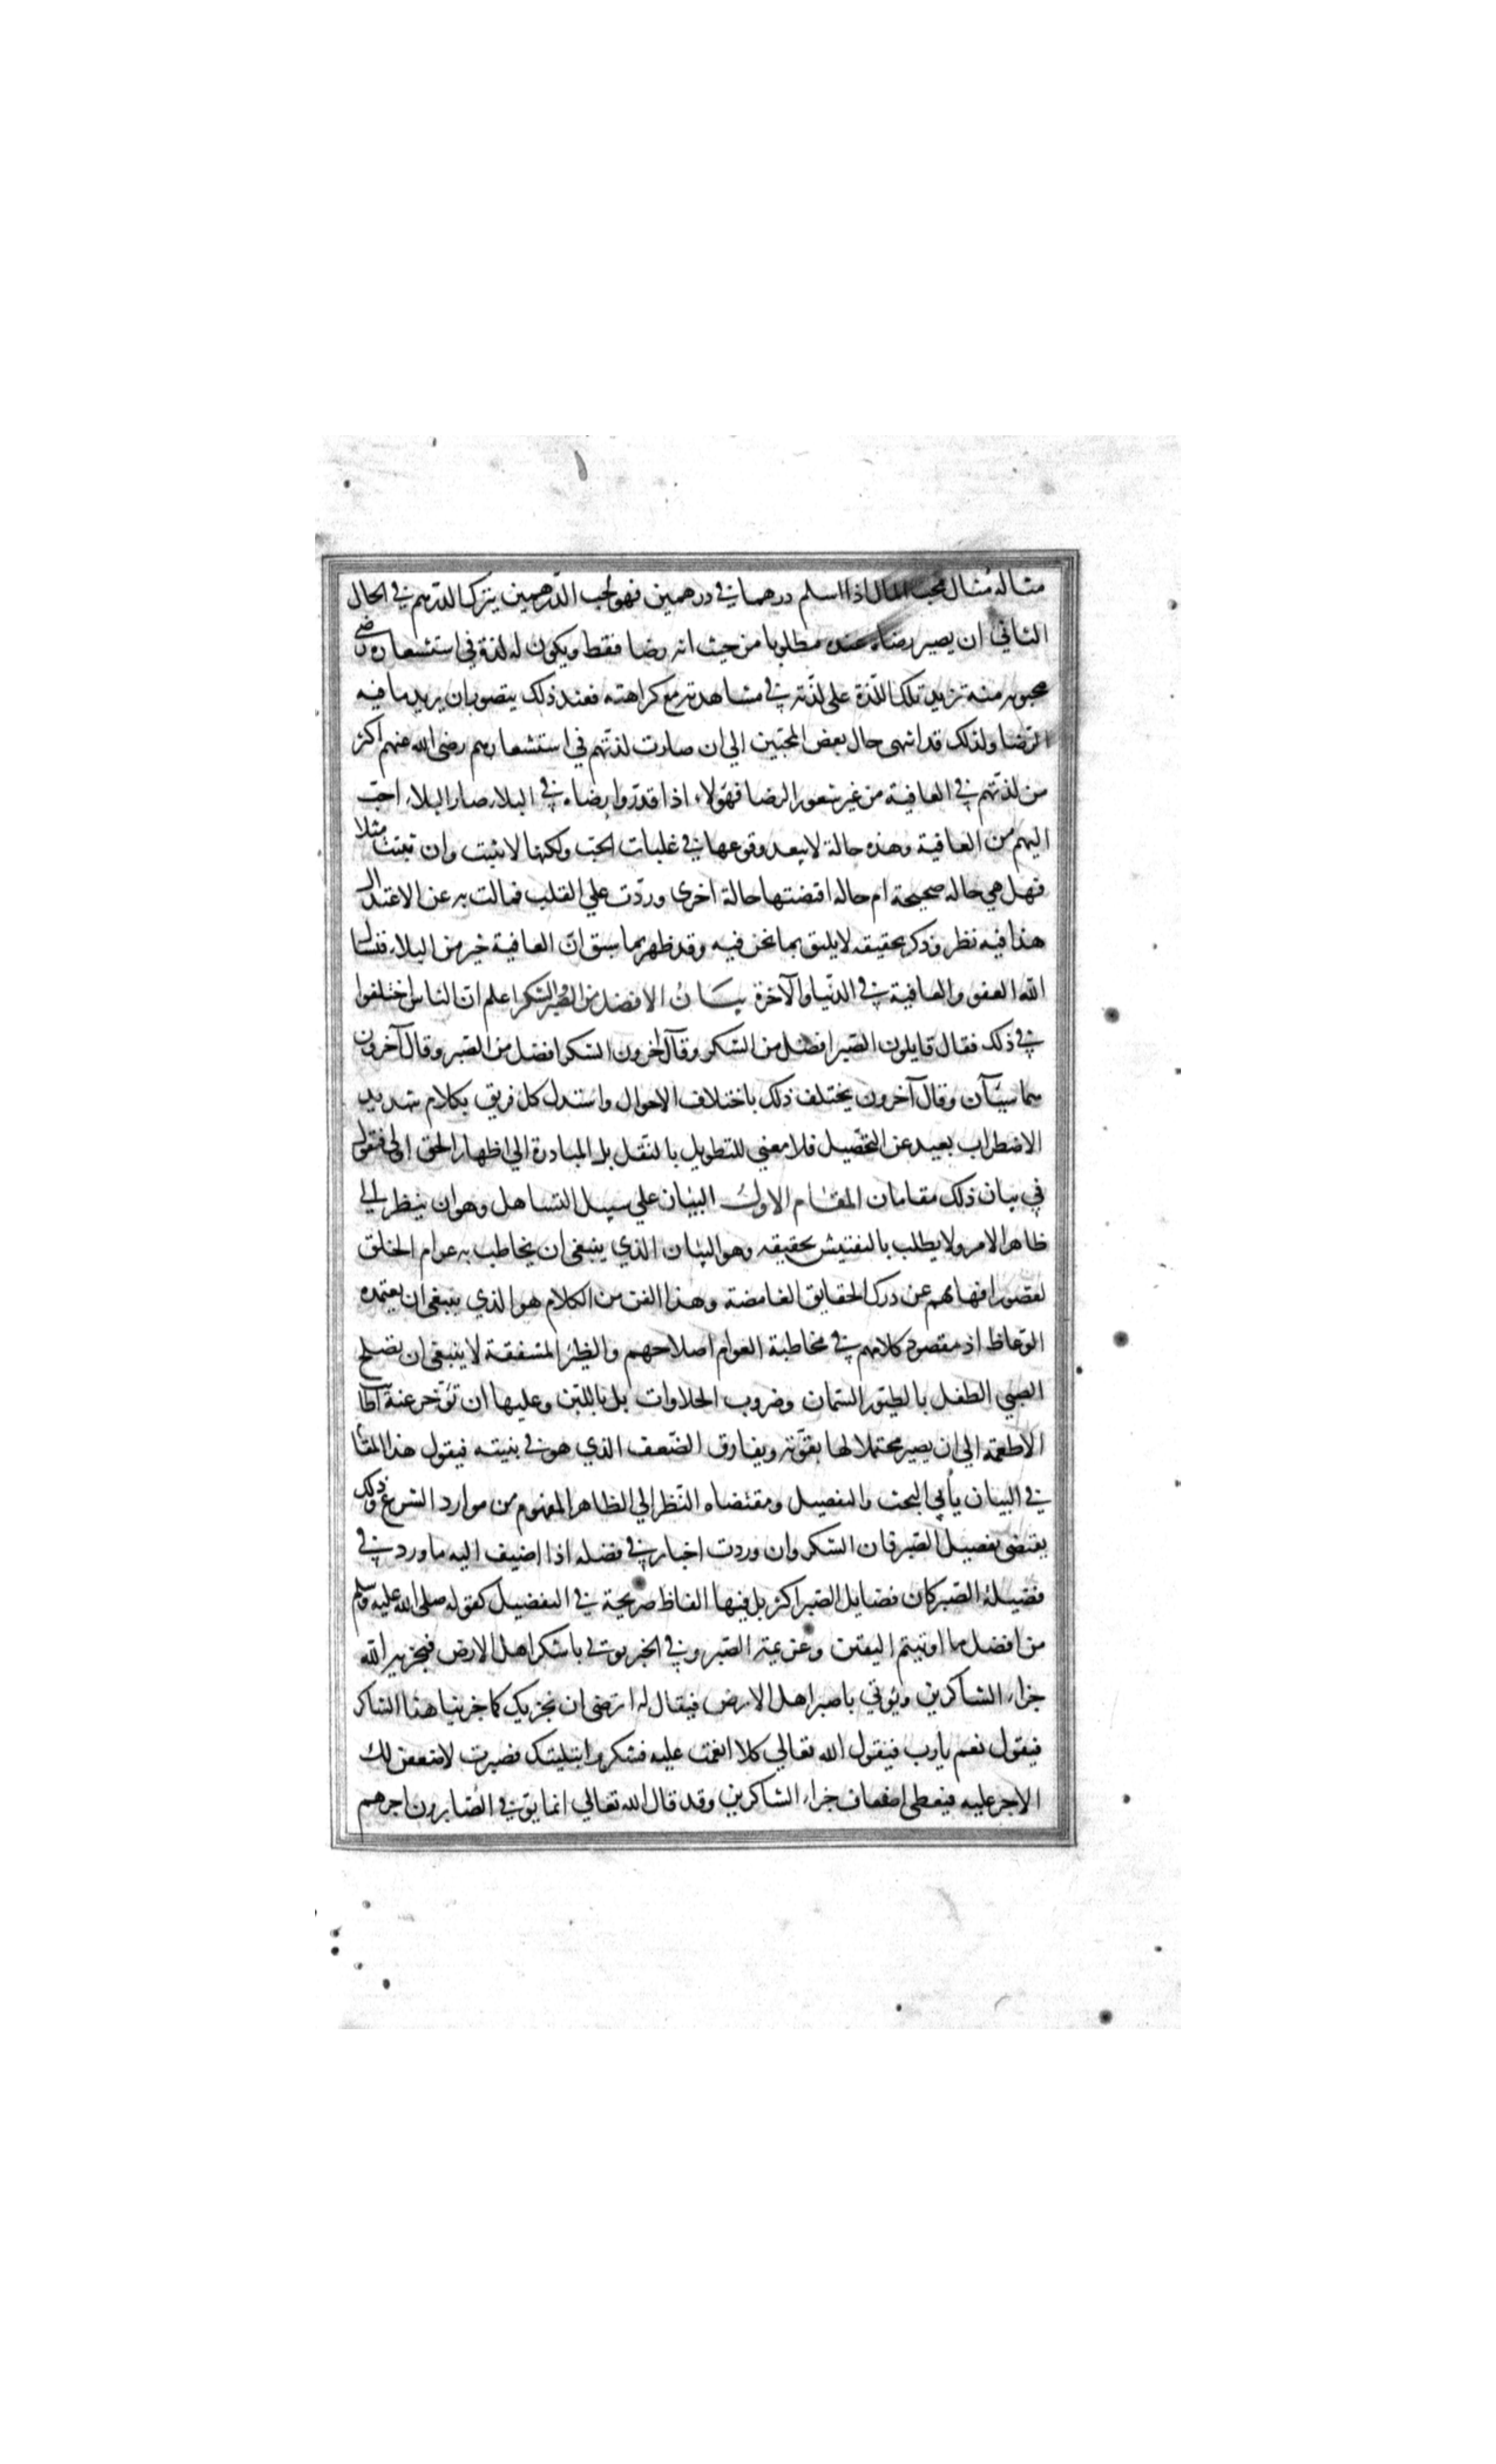 مثاله مثال محب المال اذا اسلم درهما في درهمين فهو لحب الدرهمين يترك الدرهم في الحال
الثاني ان يصير رضاه عنده مطلوبا من حيث انه رضا فقط ويكون له لذة في استشعاره رضى
محبوبه منه تزيد تلك اللذة على لذته في مشاهدته مع كراهته فعند ذلك يتصور ان يريد ما فيه
الرضا ولذلك قد انتهى حال بعض المحبين الي ان صارت لذتهم في استشعارهم رضى الله عنهم اكثر
من لذتهم في العافية من غير شعور الرضا فهولاء اذا قدروا رضاه في البلاء صار البلاء احب
اليهم من العافية وهذه حالة لا يبعد وقوعها في غلبات الحب ولكنها لا تثبت وان ثبتت مثلا
فهل هي حاله صحيحة ام حاله اقتضتها حالة اخرى وردت علي القلب فمالت به عن الاعتدال
هذا فيه نظر وذكر تحقيقه لا يليق بما نحن فيه وقد ظهر بما سبق ان العافية خير من البلاء فنسال
الله العفو والعافية في الدنيا والآخرة بيان الافضل من الصبر والشكر اعلم ان الناس اختلفوا
في ذلك فقال قايلون الصبر افضل من الشكر وقال آخرون الشكر افضل من الصبر وقال آخرون
هما سيان وقال آخرون يختلف ذلك باختلاف الاحوال واستدل كل فريق بكلام شديد
الاضطراب بعيد عن التحصيل فلا معني للتطويل بالنقل بل المبادرة الي اظهار الحق اولى فنقول
في بيان ذلك مقامان المقام الاول البيان علي سبيل التساهل وهو ان ينظر الي
ظاهر الامر ولا يطلب بالتفتيش تحقيقه وهو البيان الذي ينبغي ان يخاطب به عوام الخلق
لقصور افهامهم عن درك الحقايق الغامضة وهذا الفن من الكلام هو الذي ينبغي ان يعتمده
الوعاظ اذ مقصود كلامهم في مخاطبة العوام اصلاحهم والظئر المشفقة لا ينبغي ان تصلح
الصبي الطفل بالطيور السمان وضروب الحلاوات بل باللبن وعليها ان تؤخر عنه اطايب
الاطعمة الي ان يصير محتملا لها بقوته ويفارق الضعف الذي هو في بنيته فيقول هذا المقام
في البيان يأبي البحث والتفصيل ومقتضاه النظر الي الظاهر المفهوم من موارد الشرع وذلك
يقتضي تفضيل الصبر فان الشكر وان وردت اخبار في فضله اذا اضيف اليه ما ورد في
فضيلة الصبر كان فضايل الصبر اكثر بل فيها الفاظ صريحة في التفضيل كقوله صلى الله عليه وسلم
من افضل ما اوتيتم اليقين وعزيمة الصبر وفي الخبر يوتي باشكر اهل الارض فيجزيه الله
جزاء الشاكرين ويوتي باصبر اهل الارض فيقال له اترضى ان نجزيك كما جزينا هذا الشاكر
فيقول نعم يا رب فيقول الله تعالي كلا انعمت عليه فشكر وابتليتك فصبرت لاضعفن لك
الاجر عليه فيعطى اضعاف جزاء الشاكرين وقد قال الله تعالي انما يوفى الصابرون اجرهم